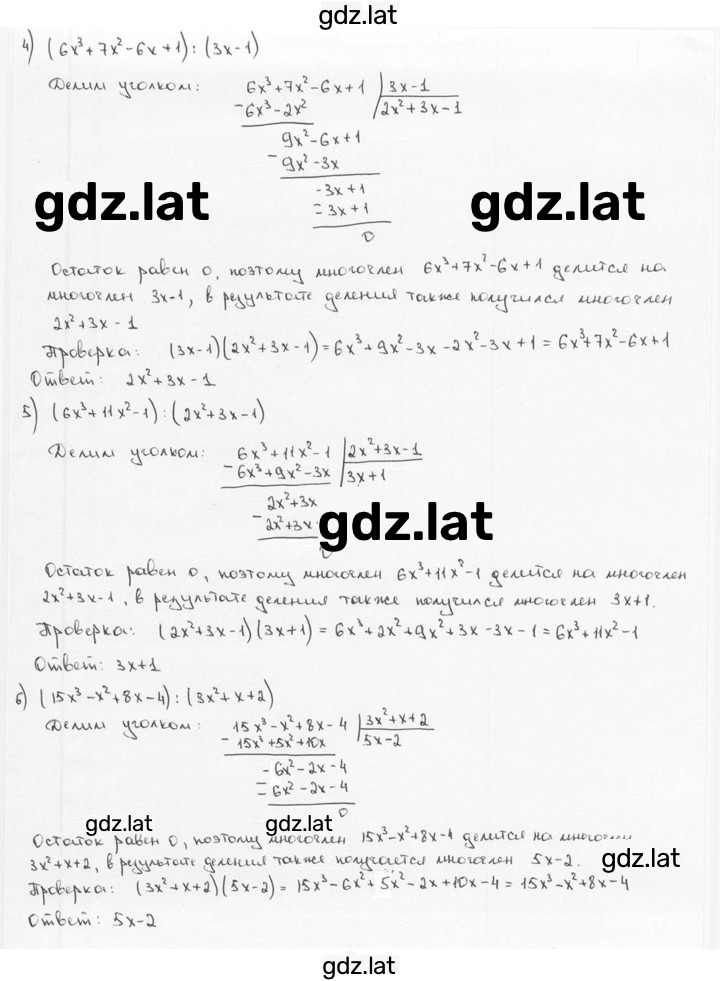 gdz.lat
4) (6x³+7x²-6x+1):(3x-1)
Делим уголком: 6x³+7x²-6x+1 | 3x-1
-6x³-2x² 2x²+3x-1
9x²-6x+1
-9x²-3x
-3x+1
=3x+1
0
gdz.lat gdz.lat
Остаток равен 0, поэтому многочлен 6x³+7x²-6x+1 делится на
многочлен 3x-1, в результате деления также получился многочлен
2x²+3x-1
Проверка: (3x-1)(2x²+3x-1)=6x³+9x²-3x-2x²-3x+1=6x³+7x²-6x+1
Ответ: 2x²+3x-1
5) (6x³+11x²-1):(2x²+3x-1)
Делим уголком: 6x³+11x²-1 | 2x²+3x-1
-6x³+9x²-3x 3x+1
2x²+3x
-2x²+3x
gdz.lat
Остаток равен 0, поэтому многочлен 6x³+11x²-1 делится на многочлен
2x²+3x-1, в результате деления также получился многочлен 3x+1.
Проверка: (2x²+3x-1)(3x+1)=6x³+2x²+9x²+3x-3x-1=6x³+11x²-1
Ответ: 3x+1
6) (15x³-x²+8x-4):(3x²+x+2)
Делим уголком: 15x³-x²+8x-4 | 3x²+x+2
-15x³+5x²+10x 5x-2
-6x²-2x-4
=6x²-2x-4
0
gdz.lat gdz.lat
Остаток равен 0, поэтому многочлен 15x³-x²+8x-4 делится на
3x²+x+2, в результате деления также получается многочлен 5x-2.
gdz.lat
Проверка: (3x²+x+2)(5x-2)=15x³-6x²+5x²-2x+10x-4=15x³-x²+8x-4
Ответ: 5x-2
gdz.lat